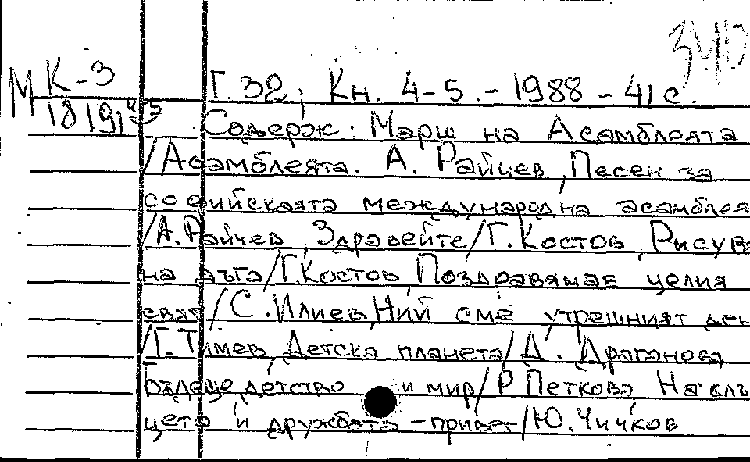 340
М К-3
18191 4-5
Г. 32; Кн. 4-5. - 1988 - 41 с.
Содерж: Марш на Асамблеята
/Асамблеята. А. Райчев, Песен за
софийската международна асамблея
/А. Райчев, Здравейте/Г. Костов, Рисува
на дъга/Г. Костов, Поздравяваме целия
свят/С. Илиев, Ний сме утрешният ден
/Г. Тимев, Детска планета/Д. Драганова
Бъдеще, детство и мир/Р. Петкова, На слън
цето и дружбата - привет/Ю. Чичков